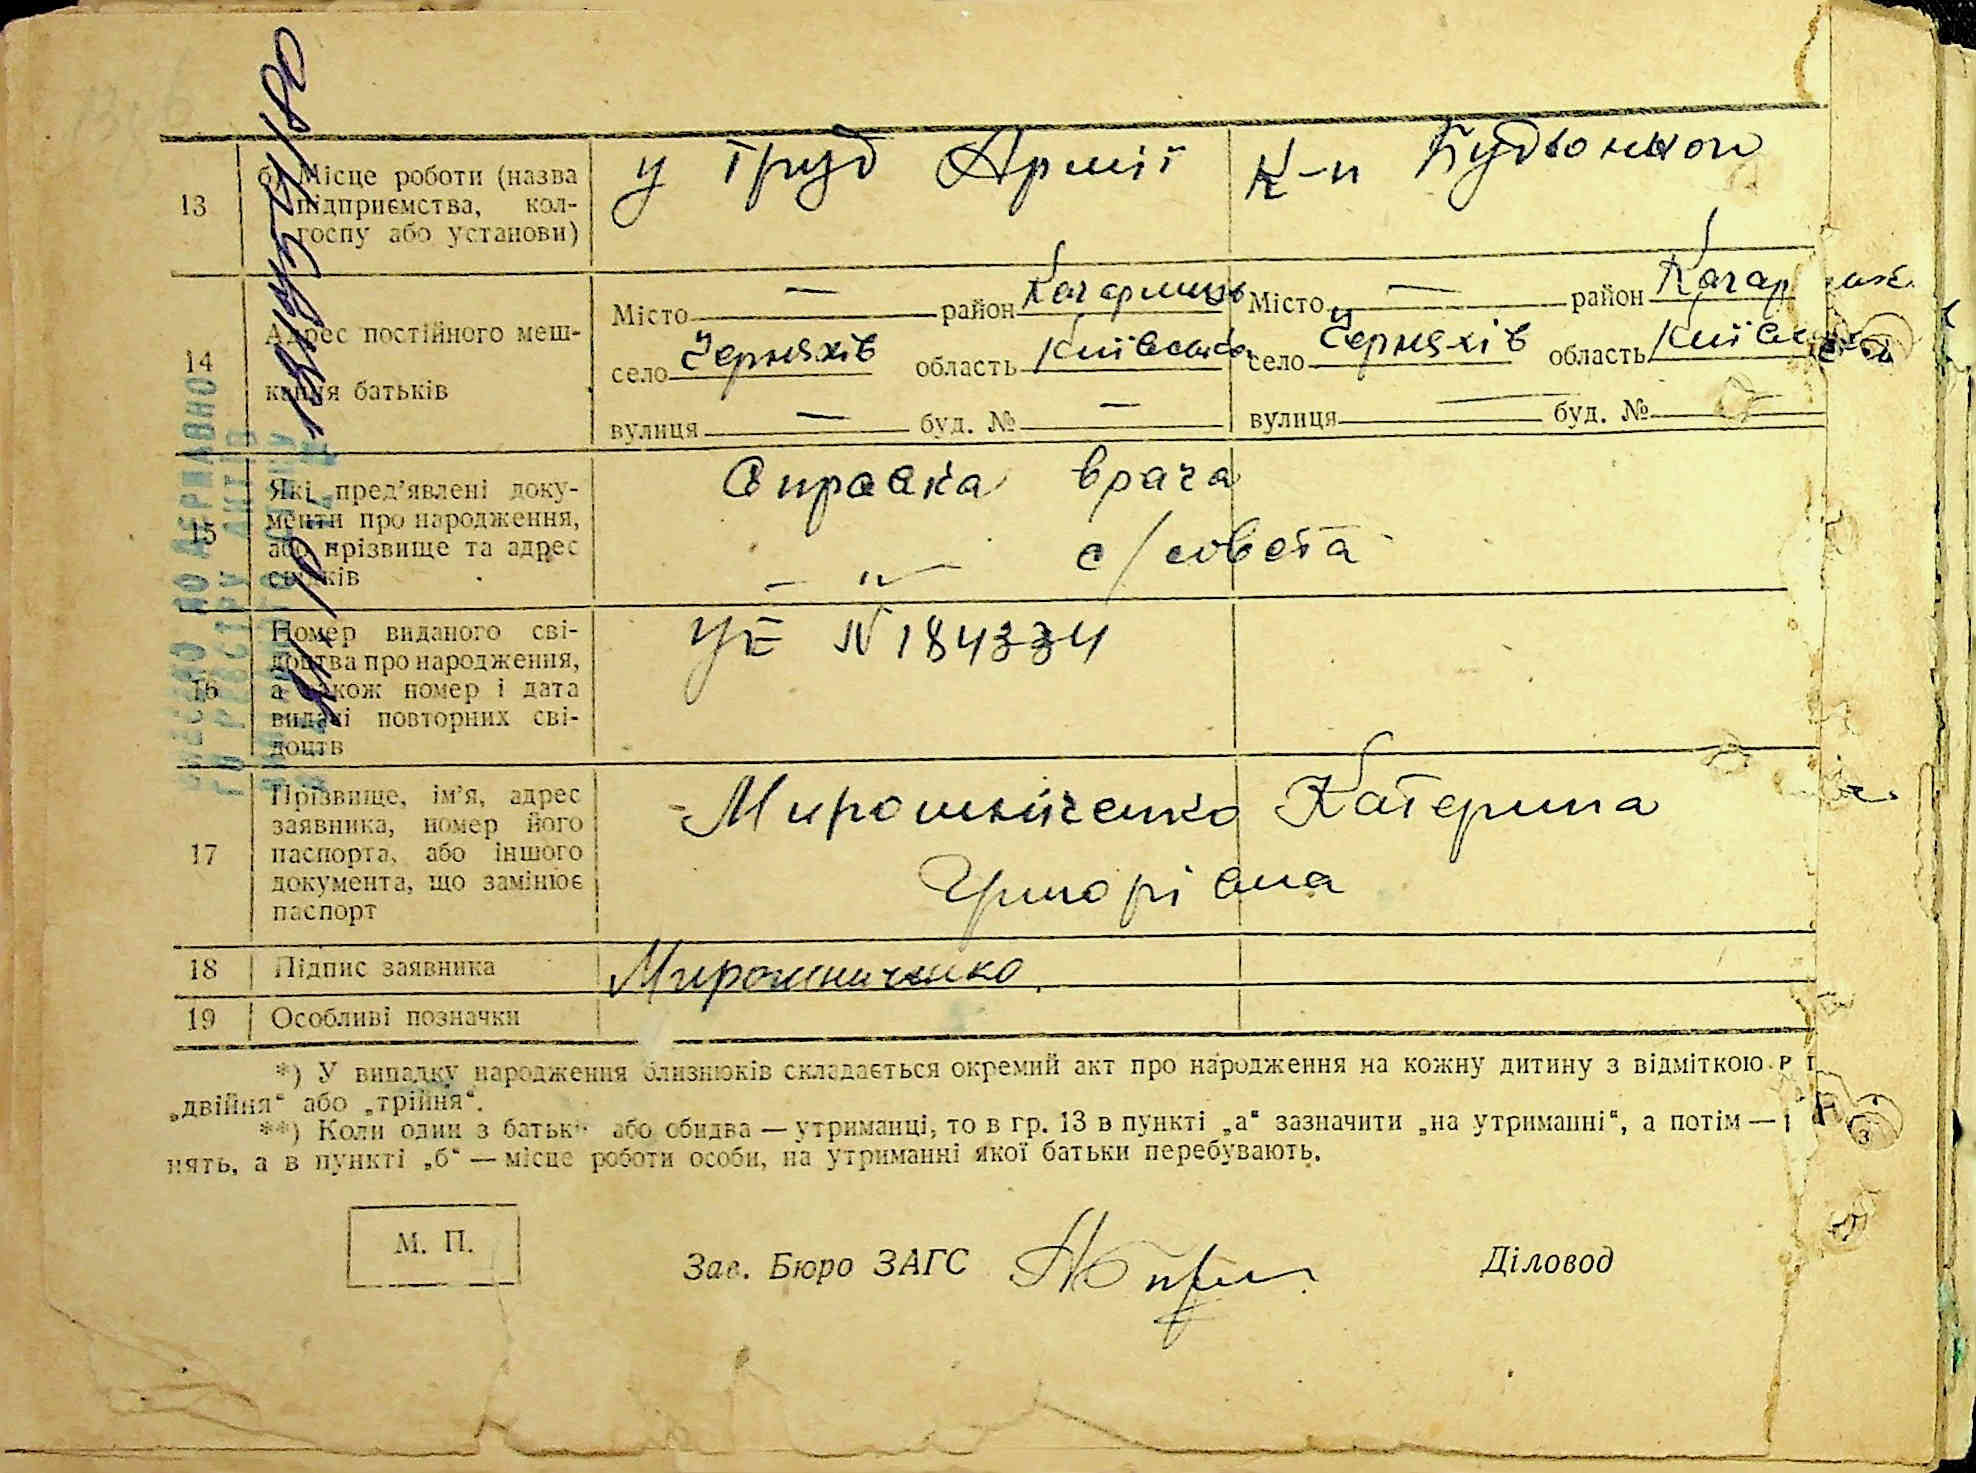 13 б) Місце роботи (назва підприємства, колгоспу або установи) у Труд Армії К-п Будьонного
14 Адрес постійного мешкання батьків
Місто — район Кагарлицьк Місто — район Кагар
село Черняхів область Київська село Черняхів область Київська
вулиця — буд. № — вулиця — буд. № —
15 Які пред'явлені документи про народження, або прізвище та адрес свідків
Справка врача
— " — с/совета
16 Номер виданого свідоцтва про народження, а також номер і дата видачі повторних свідоцтв
УЕ № 184334
17 Прізвище, ім'я, адрес заявника, номер його паспорта, або іншого документа, що замінює паспорт
Мирошніченко Катерина
Григорівна
18 Підпис заявника Мирошниченко
19 Особливі позначки
*) У випадку народження близнюків складається окремий акт про народження на кожну дитину з відміткою
„двійня“ або „трійня“.
**) Коли один з батьк або обидва — утриманці, то в гр. 13 в пункті „а“ зазначити „на утриманні“, а потім —
нять, а в пункті „б“ — місце роботи особи, на утриманні якої батьки перебувають.
М. П.
Зав. Бюро ЗАГС
Діловод